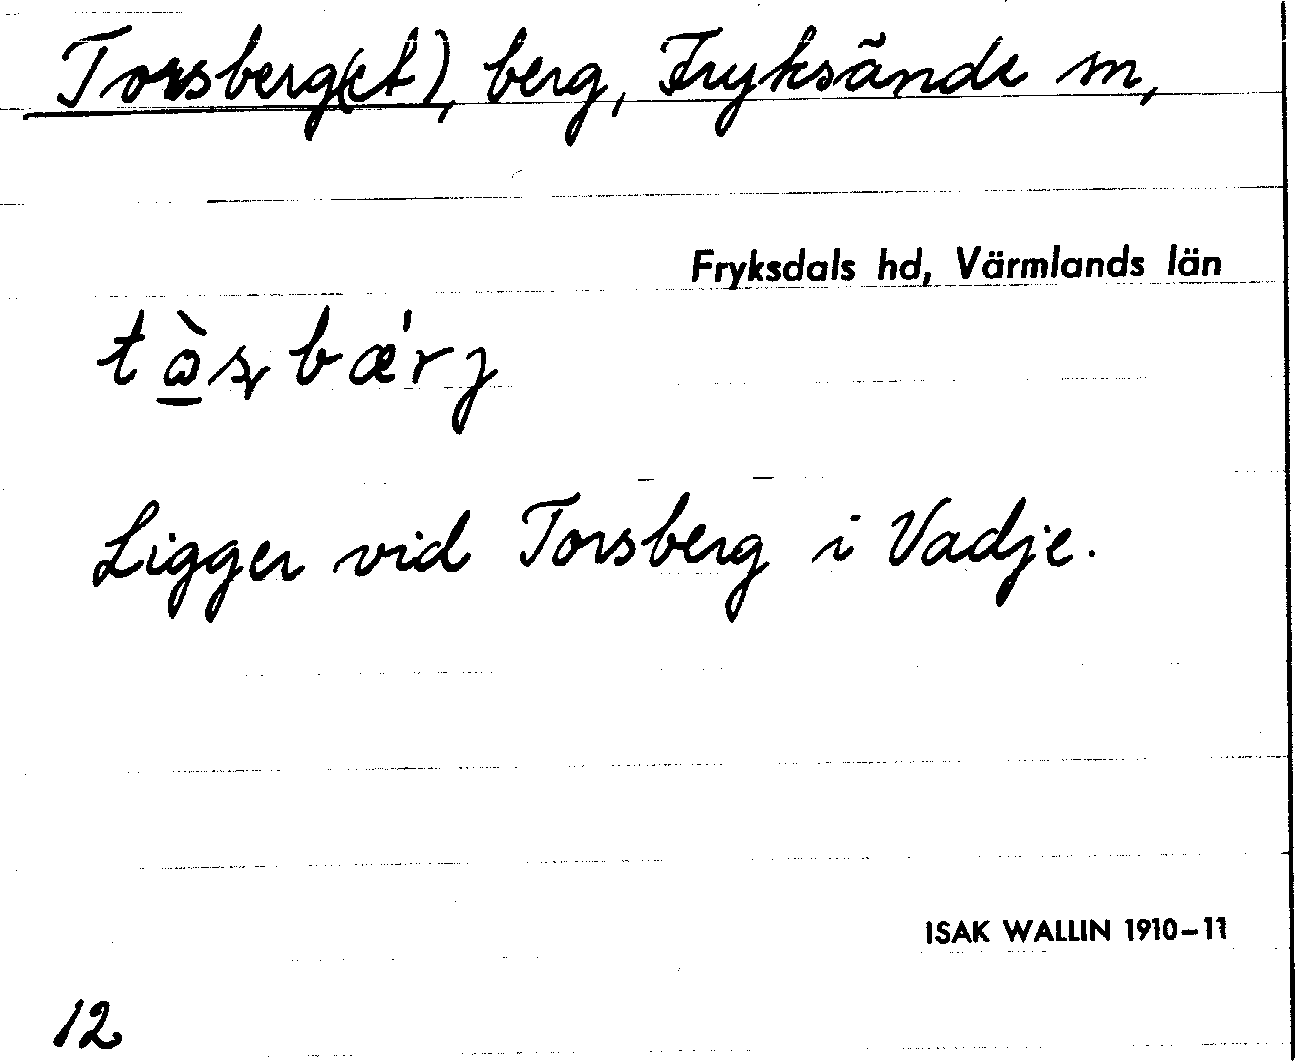 Torsberg(et), berg, Fryksände sn,
Fryksdals hd, Värmlands län
tɷ̀ʂbæ'rj
Ligger vid Torsberg i Vadje.
ISAK WALLIN 1910–11
12